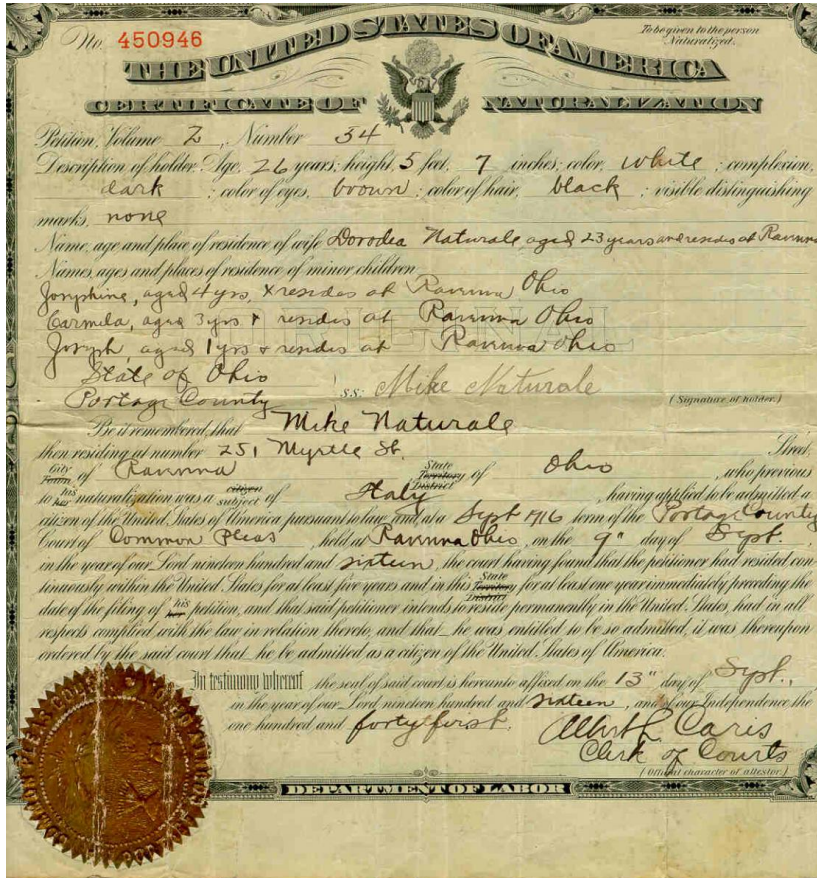 No. 450946
To be given to the person
Naturalized.
THE UNITED STATES OF AMERICA
CERTIFICATE OF NATURALIZATION
Petition, Volume 2, Number 34
Description of holder: Age, 26 years; height, 5 feet, 7 inches; color, white; complexion,
dark; color of eyes, brown; color of hair, black; visible distinguishing
marks, none
Name, age and place of residence of wife Dorodea Naturale aged 23 years and resides at Ravenna
Names, ages and places of residence of minor children
Josephine, aged 4 yrs, & resides at Ravenna Ohio
Carmela, aged 3 yrs & resides at Ravenna Ohio
Joseph, aged 1 yrs & resides at Ravenna Ohio
ORIGINAL
State of Ohio
Portage County ss: Mike Naturale
(Signature of holder.)
Be it remembered, that Mike Naturale
then residing at number 251 Myrtle St. Street,
City Town of Ravenna State Territory District of Ohio, who previous
to his her naturalization was a citizen subject of Italy, having applied to be admitted a
citizen of the United States of America pursuant to law, and, at a Sept 1916 term of the Portage County
Court of Common Pleas, held at Ravenna Ohio, on the 9" day of Sept.,
in the year of our Lord nineteen hundred and sixteen, the court having found that the petitioner had resided con-
tinuously within the United States for at least five years and in this State Territory District for at least one year immediately preceding the
date of the filing of his her petition, and that said petitioner intends to reside permanently in the United States, had in all
respects complied with the law in relation thereto, and that he was entitled to be so admitted, it was thereupon
ordered by the said court that he be admitted as a citizen of the United States of America.
In testimony whereof the seal of said court is hereunto affixed on the 13" day of Sept.,
in the year of our Lord nineteen hundred and sixteen, and of our Independence the
one hundred and forty first.
Albert L Caris
Clerk of Courts
(Official character of attestor.)
DEPARTMENT OF LABOR